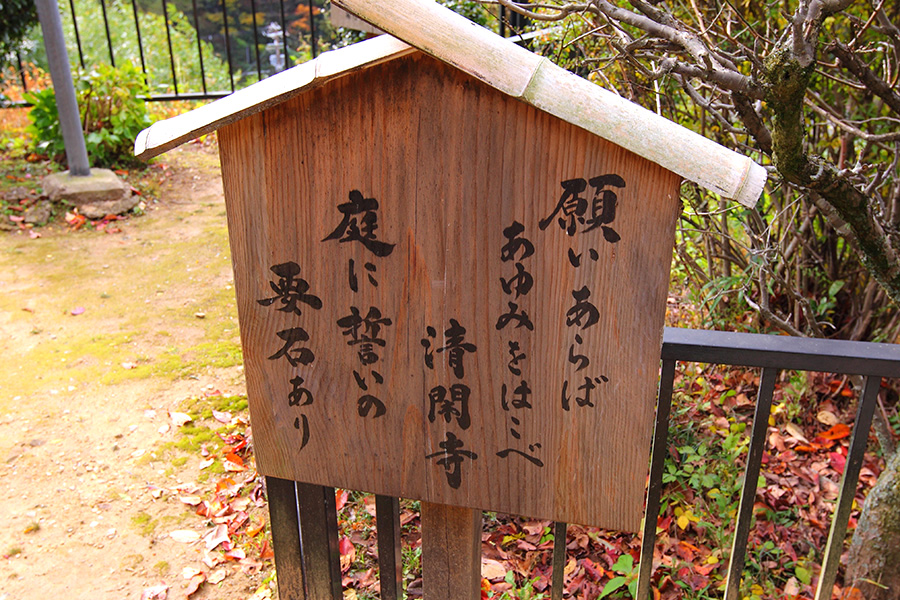 願いあらば
あゆみをはこべ
清閑寺
庭に誓いの
要石あり